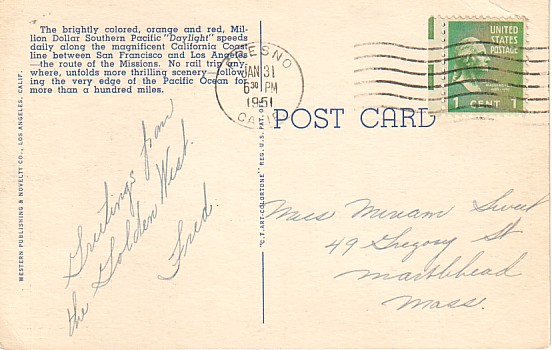 The brightly colored, orange and red, Mil-
lion Dollar Southern Pacific "Daylight" speeds
daily along the magnificent California Coast
line between San Francisco and Los Angeles
—the route of the Missions. No rail trip any-
where, unfolds more thrilling scenery—follow-
ing the very edge of the Pacific Ocean for
more than a hundred miles.
WESTERN PUBLISHING & NOVELTY CO., LOS ANGELES, CALIF.
Greetings from
the Golden West.
Fred.
"C.T. ART-COLORTONE" REG. U.S. PAT. OFF.
FRESNO
JAN 31
6 30 PM
1951
CALIF.
UNITED
STATES
POSTAGE
1 CENT 1
POST CARD
Miss Miriam Sweet
49 Gregory St
Marblehead
Mass.